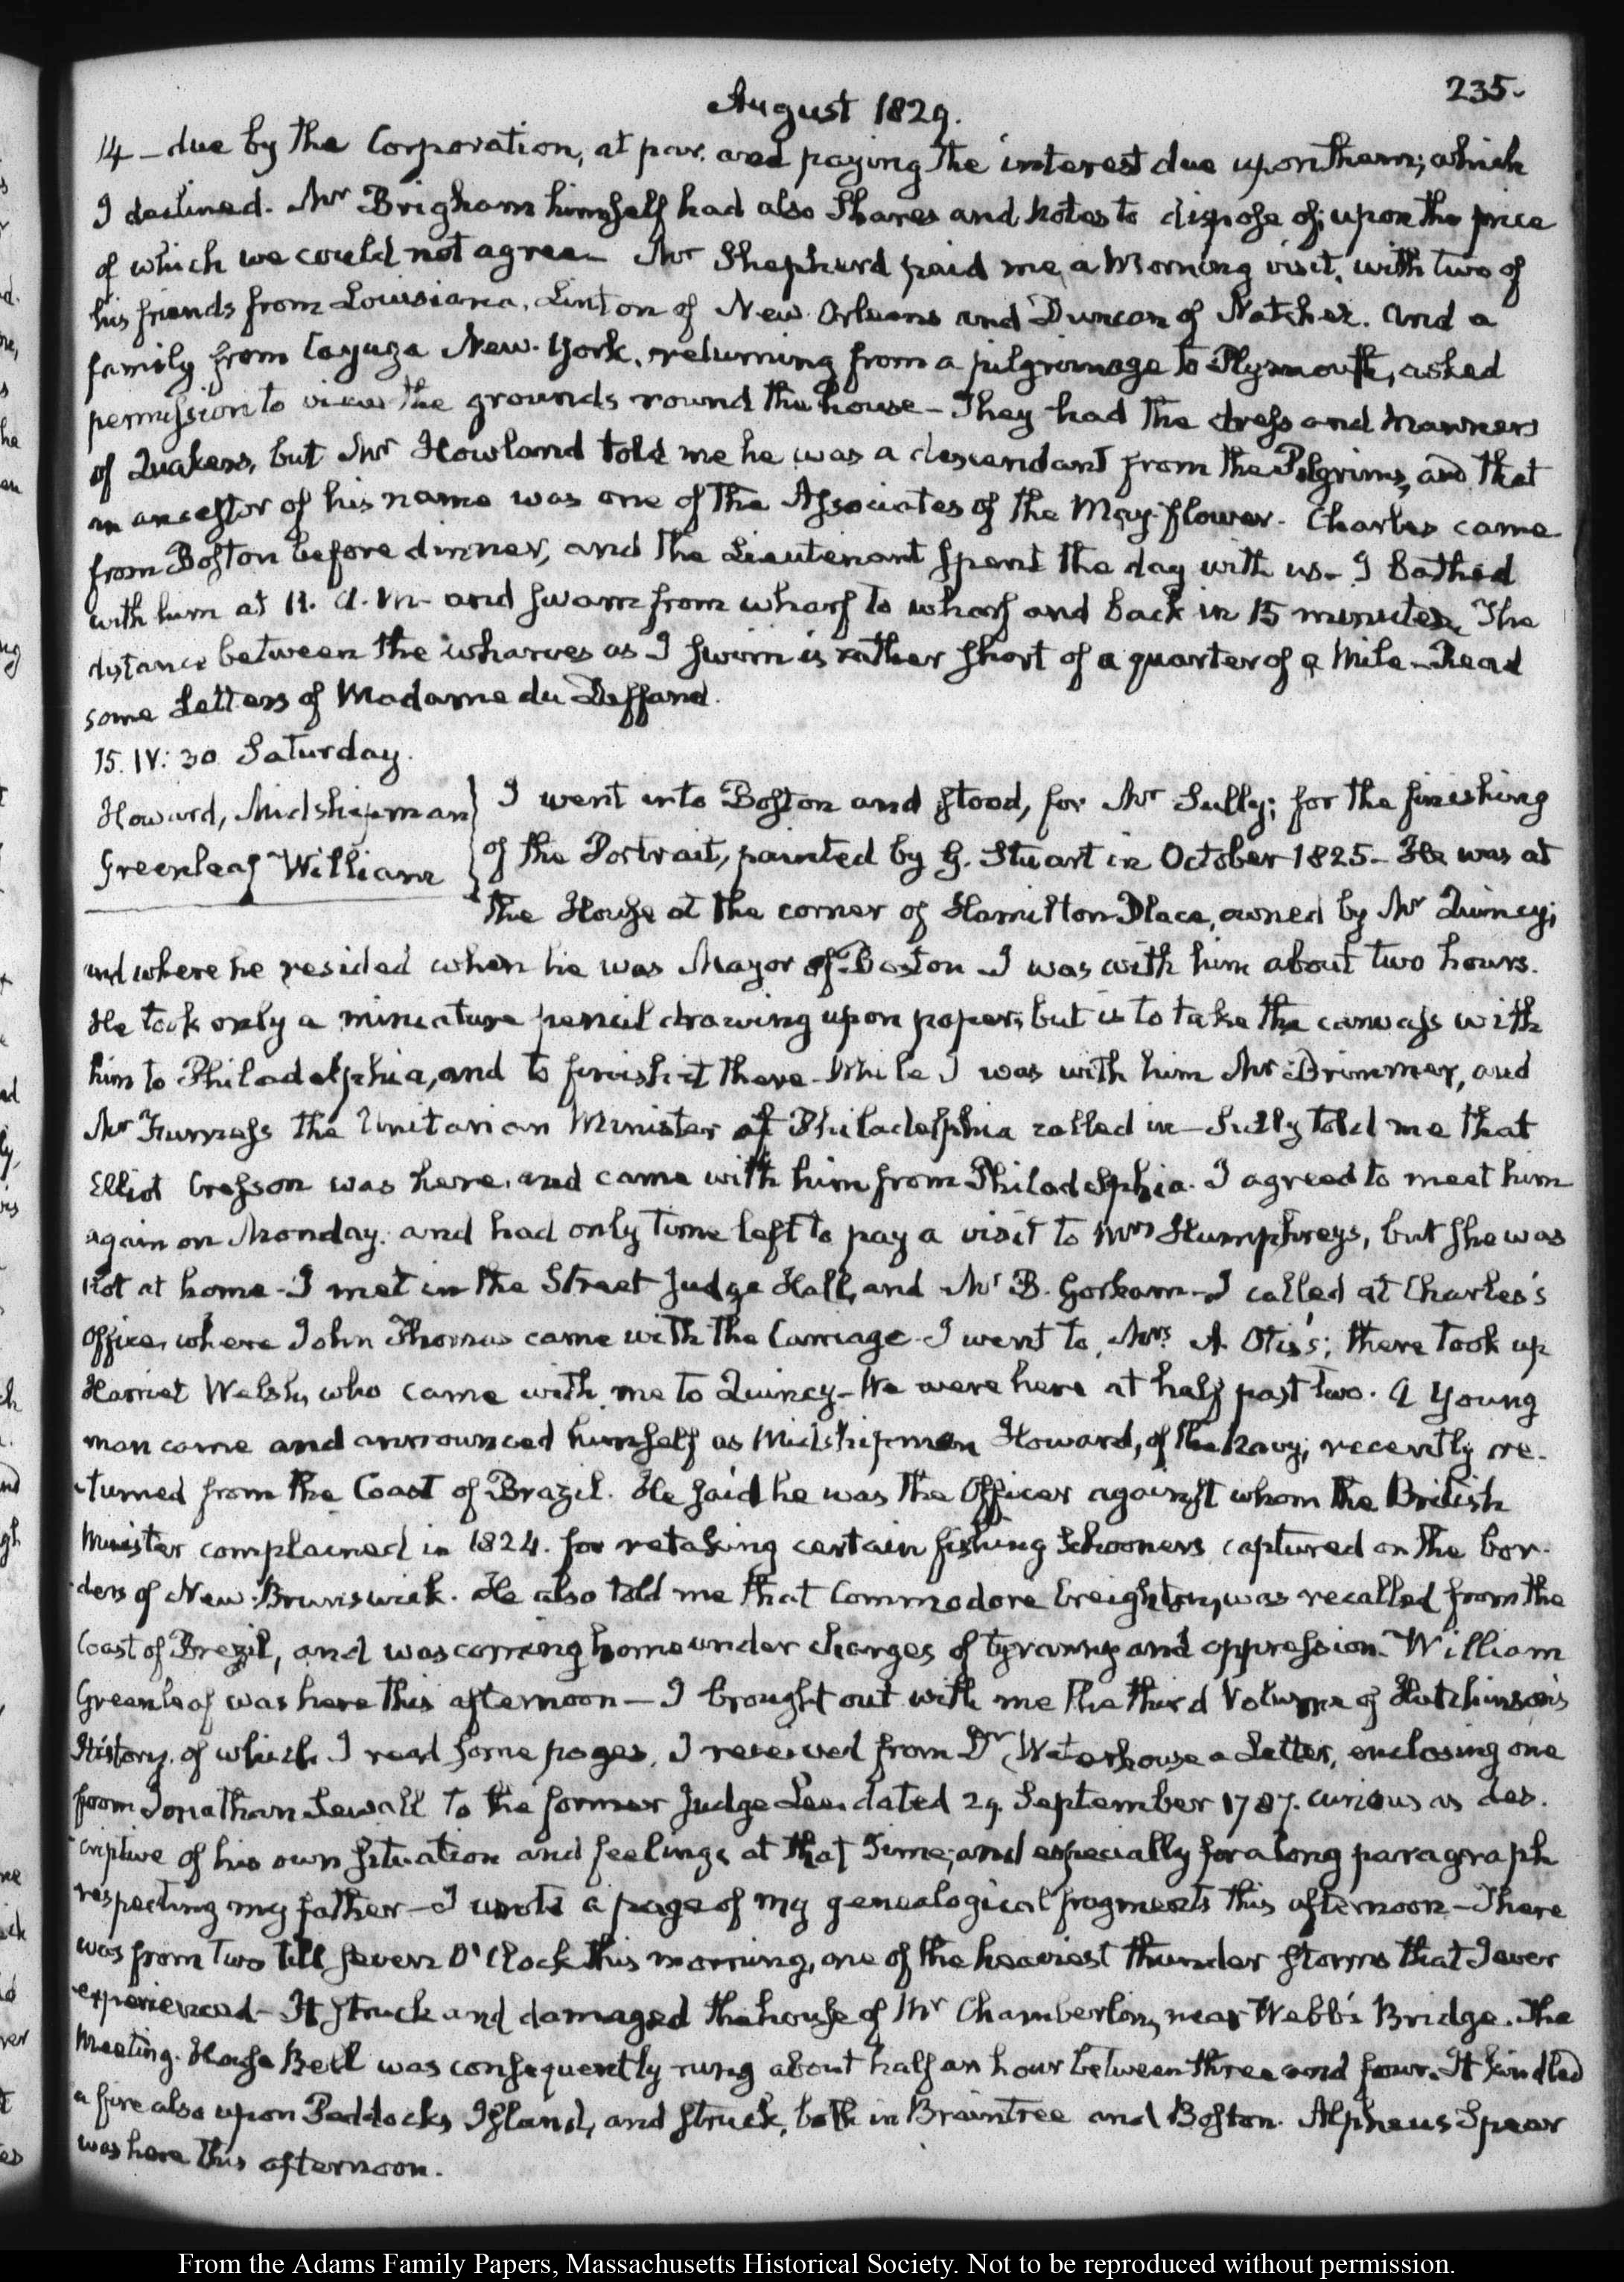 235.
August 1829.
14 – due by the Corporation, at par. and paying the interest due upon them; which
I declined. Mr Brigham himself had also Shares and Notes to dispose of; upon the price
of which we could not agree – Mr Shepherd paid me, a Morning visit, with two of
his friends from Louisiana, Linton of New-Orleans and Duncan of Natchez. And a
family from Cayuga New-York, returning from a pilgrimage to Plymouth, asked
permission to view the grounds round the house – They had the dress and manners
of Quakers, but Mr Howland told me he was a descendant from the Pilgrims, and that
an ancestor of his name was one of the Associates of the May-flower. Charles came
from Boston before dinner, and the Lieutenant spent the day with us – I bathed
with him at 11. A.M. and swam from wharf to wharf and back in 15 minutes. The
distance between the wharves as I swim is rather short of a quarter of a Mile – Read
some Letters of Madame du Deffand.
15. IV: 30 Saturday.
Howard, Midshipman
Greenleaf William
I went into Boston and stood, for Mr Sully; for the finishing
of the Portrait, painted by G. Stuart in October 1825 – He was at
the House at the corner of Hamilton Place, owned by Mr Quincy;
and where he resided when he was Mayor of Boston – I was with him about two hours.
He took only a miniature pencil drawing upon paper; but is to take the canvass with
him to Philadelphia, and to finish it there – While I was with him Mr Brimmer, and
Mr Furness the Unitarian Minister at Philadelphia called in – Sully told me that
Elliot Cresson was here, and came with him from Philadelphia. I agreed to meet him
again on Monday. and had only time left to pay a visit to Mrs Humphreys, but she was
not at home – I met in the Street Judge Hall, and Mr B. Gorham – I called at Charles's
Office, where John Thomas came with the Carriage – I went to Mrs. A Otis's; there took up
Harriet Welsh, who came with me to Quincy – We were here at half past two. A young
man came and announced himself as Midshipman Howard, of the Navy; recently re-
-turned from the Coast of Brazil. He said he was the Officer against whom the British
Minister complained in 1824. for retaking certain fishing Schooners captured on the bor-
-ders of New-Brunswick. He also told me that Commodore Creighton, was recalled from the
Coast of Brazil, and was coming home under charges of tyranny and oppression – William
Greenleaf was here this afternoon – I brought out with me the third Volume of Hutchinson's
History, of which I read some pages. I received from Dr Waterhouse a Letter, enclosing one
from Jonathan Sewall to the former Judge Lee, dated 29. September 1787. curious as des-
-criptive of his own situation and feelings at that Time; and especially for a long paragraph
respecting my father – I wrote a page of my genealogical fragments this afternoon – There
was from two till seven O'Clock this morning, one of the heaviest thunder storms that I ever
experienced – It struck and damaged the house of Mr Chamberlin, near Webb's Bridge. The
Meeting-House Bell was consequently rung about half an hour between three and four. It kindled
a fire also upon Peddocks Island, and struck, both in Braintree and Boston. Alpheus Spear
was here this afternoon.
From the Adams Family Papers, Massachusetts Historical Society. Not to be reproduced without permission.